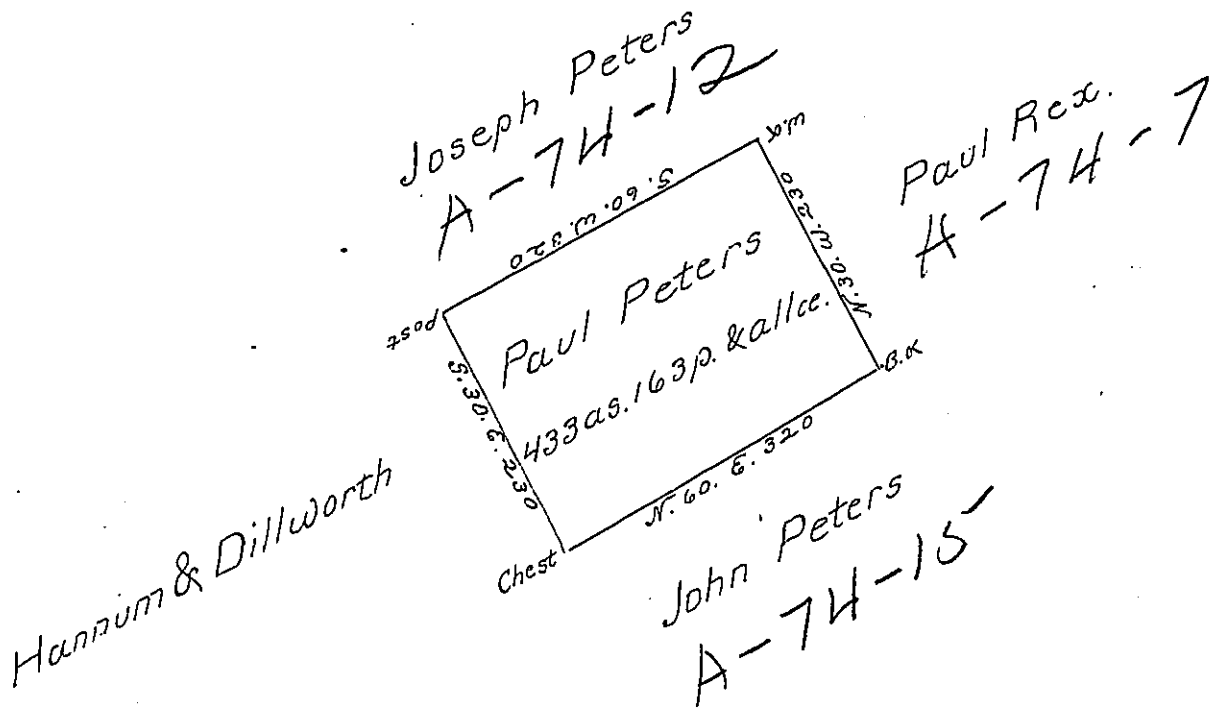 Joseph Peters
A-74-12
Paul Rex.
A-74-7
W.O.
S. 60. W. 320
N. 30. W. 230
Post
Paul Peters
433as. 163p. & allce.
S. 30. E. 230
B.O.
N. 60. E. 320
Chest
Hannum & Dillworth
John Peters
A-74-15